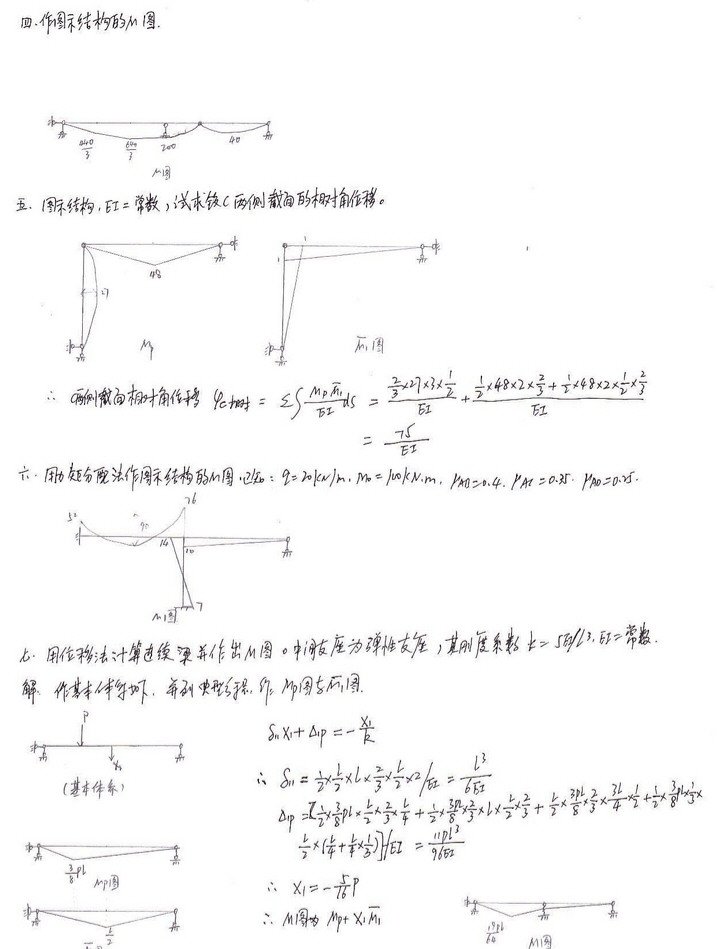 四. 作图示结构的M图.
440/3 640/3 200 40
M图
五. 图示结构, EI=常数, 试求铰C两侧截面的相对角位移。
48
27
Mp
1
1
M̄1图
∴ 两侧截面相对角位移 φc相对 = Σ∫MpM̄1/EI ds = (2/3×27×3×1/2)/EI + (1/2×48×2×2/3+1/2×48×2×1/2×2/3)/EI
= 75/EI
六. 用力矩分配法作图示结构的M图. 已知: q=20kN/m, M0=100kN.m, μAB=0.4, μAC=0.35, μAD=0.25.
76
90
14 10
7
M图
七. 用位移法计算连续梁并作出M图。中间支座为弹性支座, 其刚度系数 k=5EI/L³. EI=常数.
解. 作基本体系如下, 并列典型方程, 作 Mp图与M̄1图.
P
X1
(基本体系)
δ11X1+Δ1P=-X1/k
∴ δ11 = 1/2×L/2×L×2/3×L/2×2/EI = L³/6EI
Δ1P=[1/2×3/8PL×L/2×2/3×L/4+
L/2×(L/4+L/4×1/3)]/EI = 11PL³/96EI
∴ X1=-5/16P
∴ M图为 Mp+X1M̄1
3/8PL
Mp图
L/2
M图